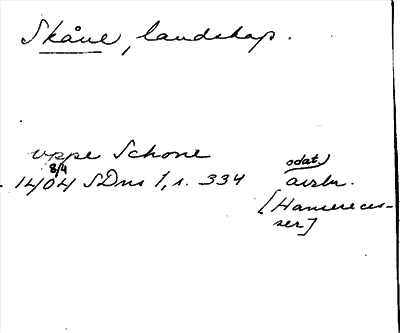 Skåne, landskap.
uppe Schone
8/4 odat.)
1404 SDns 1, s. 334 avskr.
[Hanserecesser]